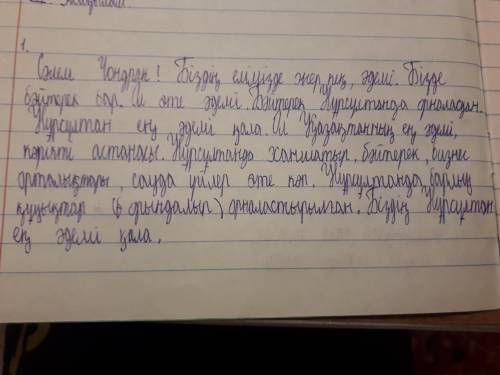 1.
Сәлем Чондрэк! Біздің елімізде жер көп, әдемі. Бізде
бәйтерек бар. Ол өте әдемі. Бәйтерек Нұрсұлтанда орналасқан.
Нұрсұлтан ең әдемі қала. Ол Қазақстанның ең әдемі,
көрікті астанасы. Нұрсұлтанда ханшатыр, бәйтерек, бизнес
орталықтары, сауда үйлер өте көп. Нұрсұлтанда барлық
орындалып орналастырылған. Біздің Нұрсұлтан
ең әдемі қала.